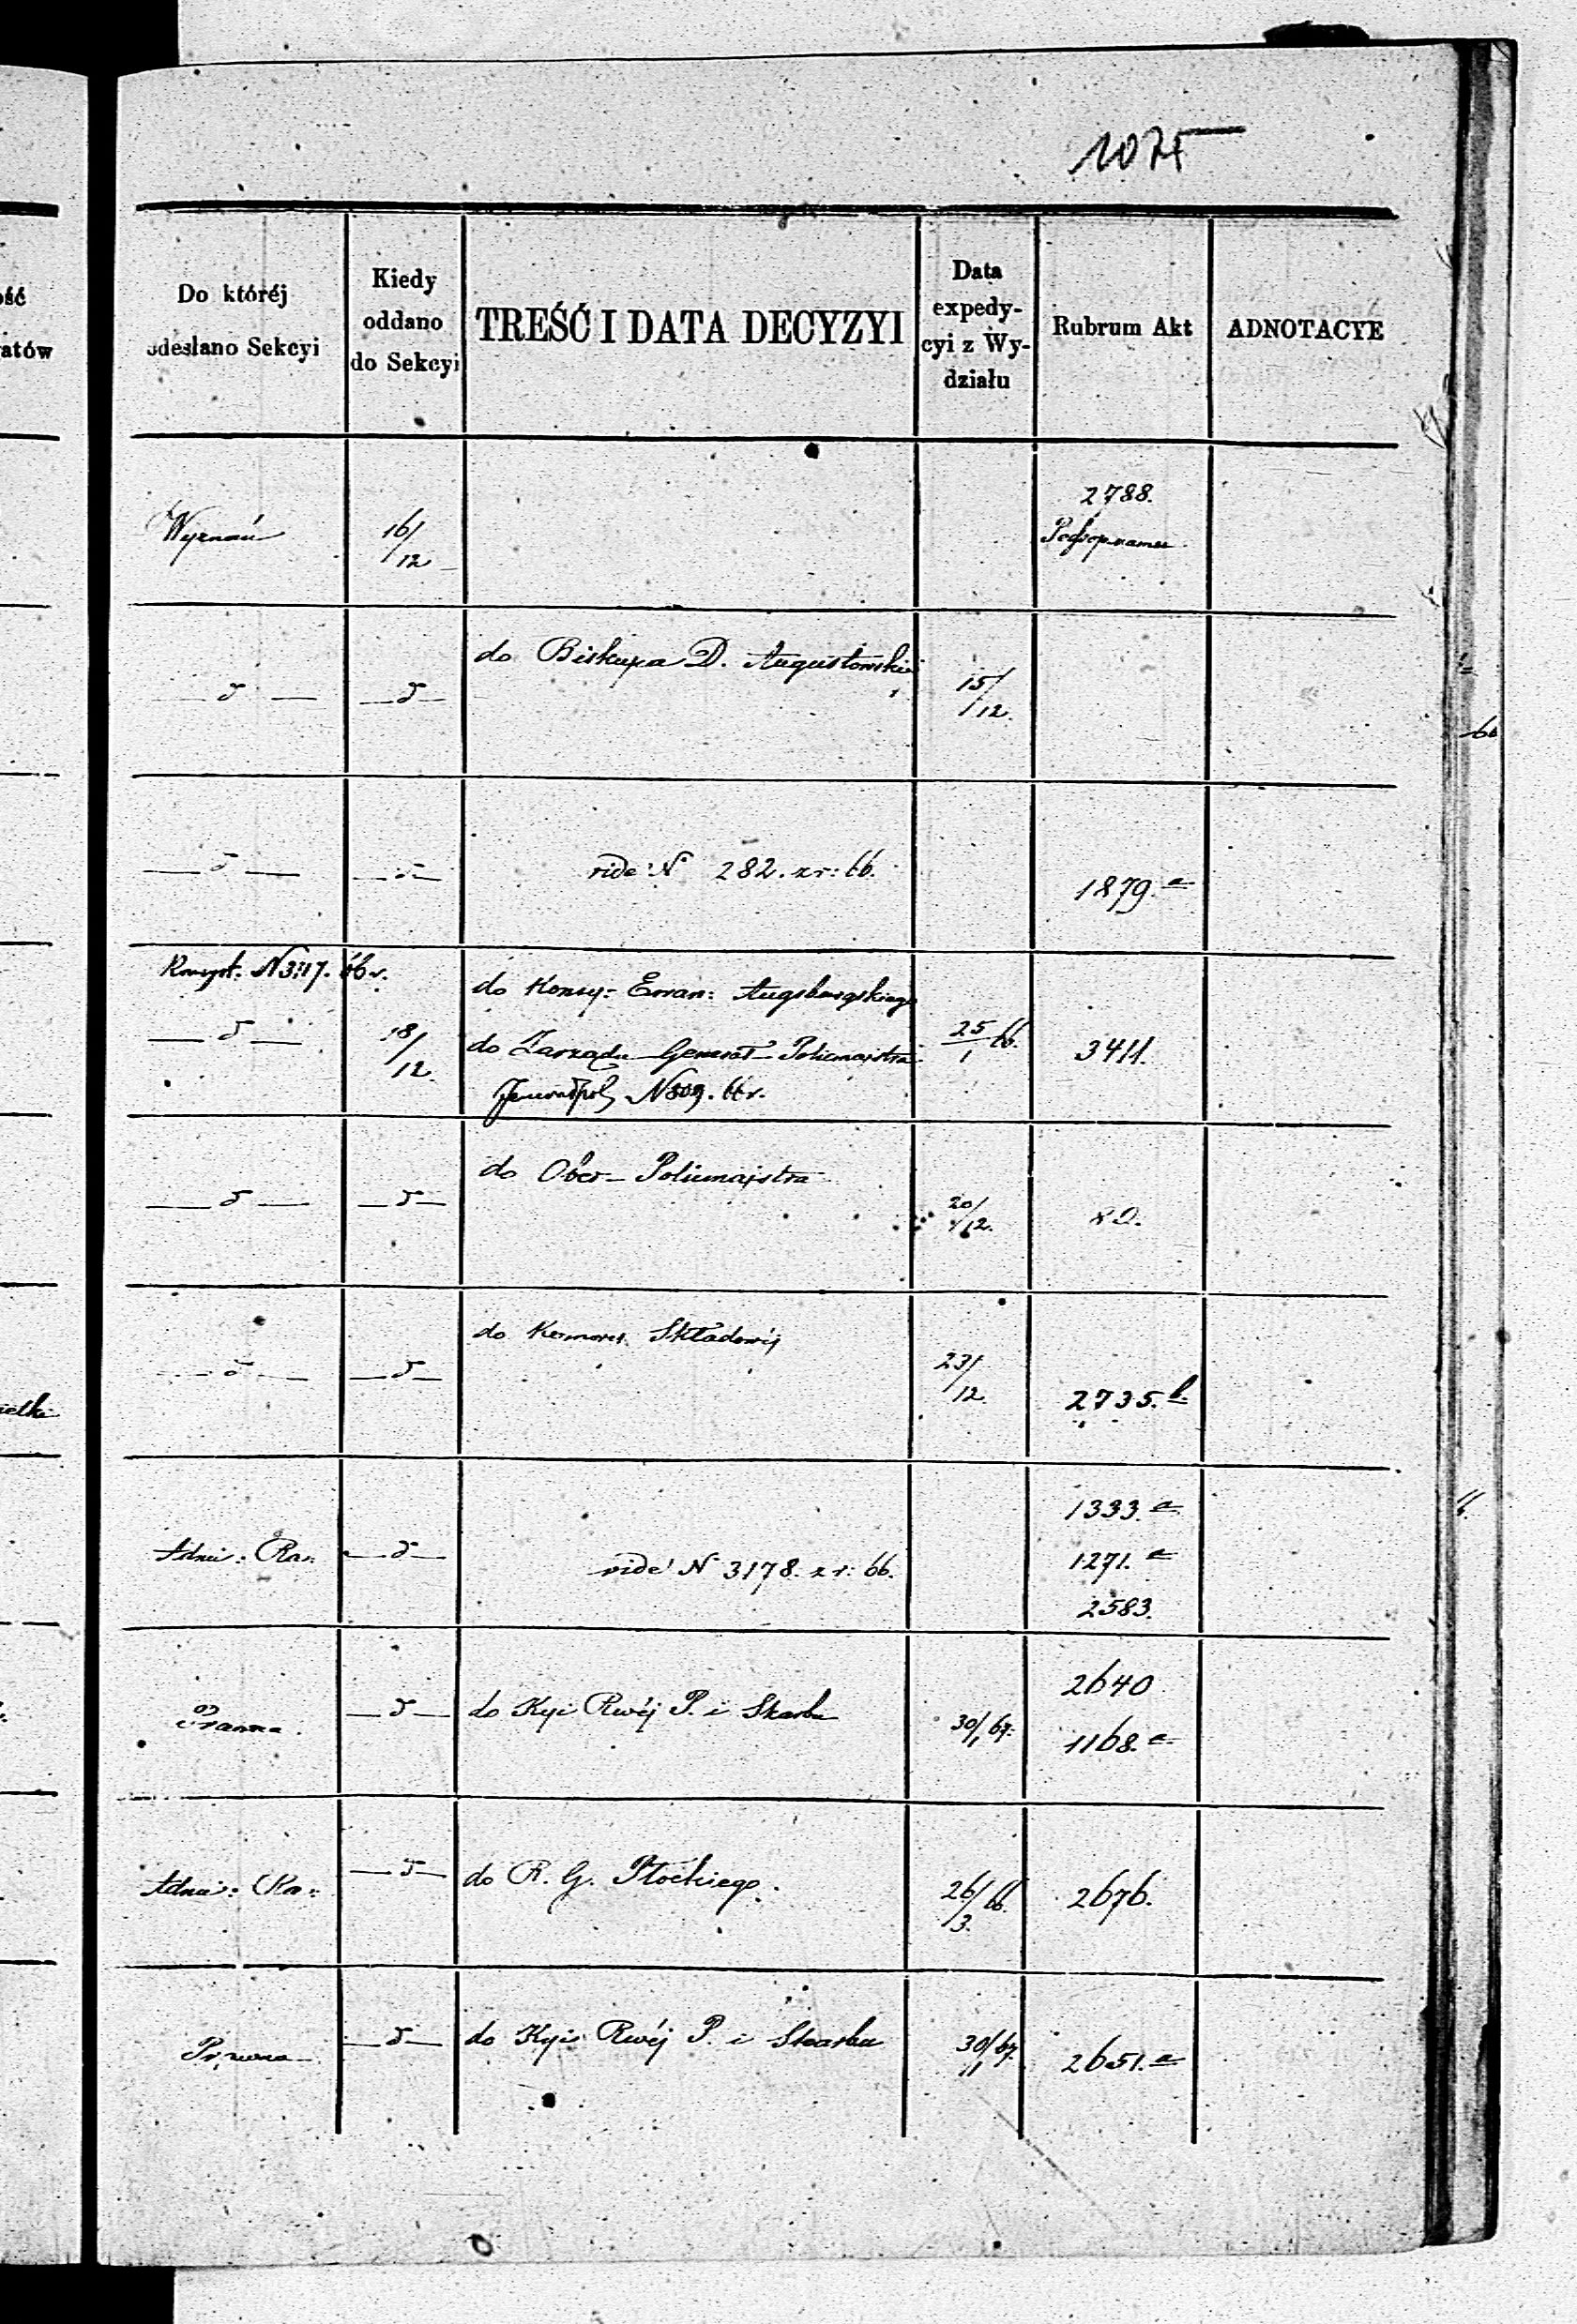 1075
ość
atów
Do któréj
odesłano Sekcyi
Kiedy
oddano
do Sekcyi
TREŚĆ I DATA DECYZYI
Data
expedy-
cyi z Wy-
działu
Rubrum Akt
ADNOTACYE
Wyznań
16/12
2788.
do Biskupa D. Augustowskiej
15/12.
vide N° 282. z r: 66.
1879. a
Konsyst. N 3117. 66 r.
18/12.
do Konsy: Ewan: Augsburgskiego
do Zarządu Generał-Policmajstra
N 809. 66 r.
25/1 66.
3411.
do Ober-Policmajstra
20/12.
82.
do Składowéj
23/12.
2735. b.
ielki
Admi: Ra:
vide N° 3178. z r: 66.
1333. a
1271. a
2583.
Prawna.
do Kyi Rwéj P. i Skarbu
30/1 67.
2640
1168. a
Admi: Ra:
do R. G. Płockiego.
26/3. 66.
2676.
Prawna
do Kyi Rwéj P. i Skarbu
30/1 67.
2651. a